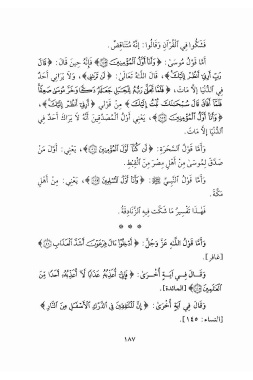 فشكوا في القرآن وقالوا: إنه متناقض.
أما قول موسى: ﴿وَأَنَا أَوَّلُ الْمُؤْمِنِينَ﴾ فإنه حين قال: ﴿قَالَ
رَبِّ أَرِنِي أَنظُرْ إِلَيْكَ﴾، قال الله تعالى: ﴿لَن تَرَانِي﴾، ولا يراني أحد
في الدنيا إلا مات، ﴿فَلَمَّا تَجَلَّى رَبُّهُ لِلْجَبَلِ جَعَلَهُ دَكًّا وَخَرَّ مُوسَى صَعِقًا
فَلَمَّا أَفَاقَ قَالَ سُبْحَانَكَ تُبْتُ إِلَيْكَ﴾ من قولي ﴿أَرِنِي أَنظُرْ إِلَيْكَ﴾،
﴿وَأَنَا أَوَّلُ الْمُؤْمِنِينَ﴾، يعني أول المصدقين أنه لا يراك أحد في
الدنيا إلا مات.
وأما قول السحرة: ﴿أَن كُنَّا أَوَّلَ الْمُؤْمِنِينَ﴾، يعني: أول من
صدق لموسى من أهل مصر من القبط.
وأما قول النبي ﷺ: ﴿وَأَنَا أَوَّلُ الْمُسْلِمِينَ﴾، يعني: من أهل
مكة.
فهذا تفسير ما شكت فيه الزنادقة.
* * *
وأما قول الله عز وجل: ﴿أَدْخِلُوا آلَ فِرْعَوْنَ أَشَدَّ الْعَذَابِ﴾
[غافر].
وقال في آية أخرى: ﴿فَإِنِّي أُعَذِّبُهُ عَذَابًا لَّا أُعَذِّبُهُ أَحَدًا مِّنَ
الْعَالَمِينَ﴾ [المائدة].
وقال في آية أخرى: ﴿إِنَّ الْمُنَافِقِينَ فِي الدَّرْكِ الْأَسْفَلِ مِنَ النَّارِ﴾
[النساء: ١٤٥].
١٨٧